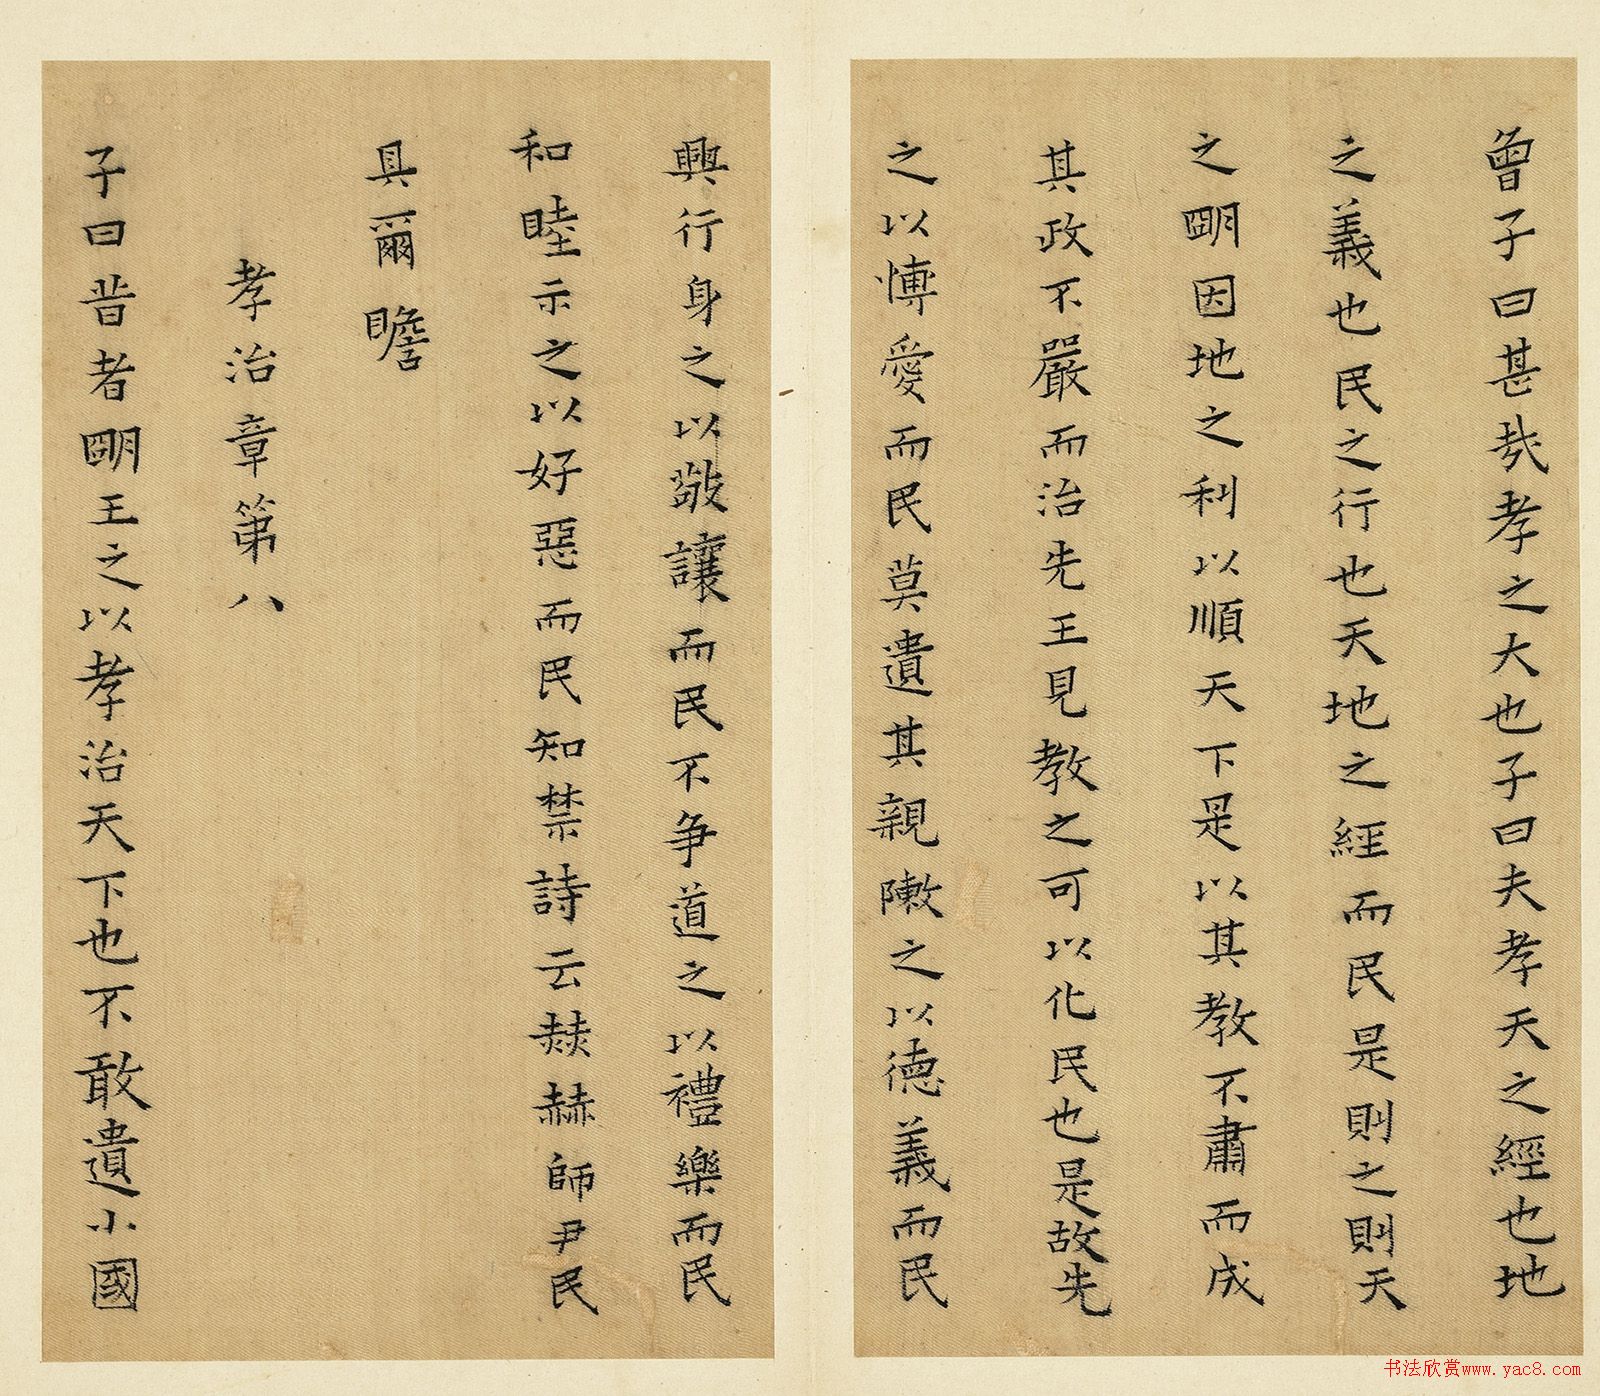 曾子曰甚哉孝之大也子曰夫孝天之經也地
之義也民之行也天地之經而民是則之則天
之明因地之利以順天下是以其教不肅而成
其政不嚴而治先王見教之可以化民也是故先
之以博愛而民莫遺其親陳之以德義而民
興行身之以敬讓而民不爭道之以禮樂而民
和睦示之以好惡而民知禁詩云赫赫師尹民
具爾瞻
孝治章第八
子曰昔者明王之以孝治天下也不敢遺小國
书法欣赏www.yac8.com